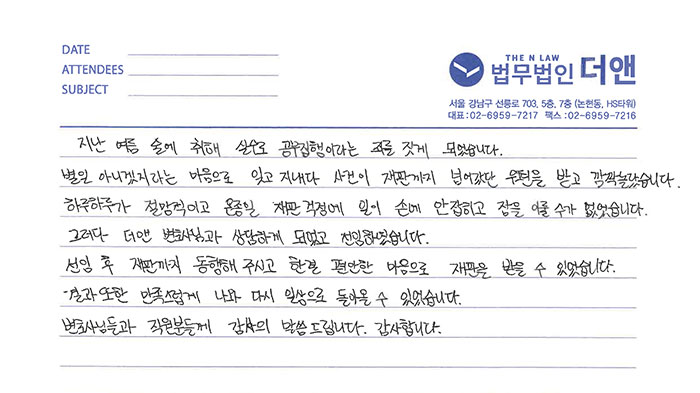 DATE
ATTENDEES
SUBJECT
THE N LAW
법무법인 더앤
서울 강남구 선릉로 703, 5층, 7층 (논현동, HS타워)
대표 : 02-6959-7217 팩스 : 02-6959-7216
지난 여름 술에 취해 실수로 공무집행이라는 죄를 짓게 되었습니다.
별일 아니겠지라는 마음으로 잊고 지내다 사건이 재판까지 넘어갔단 우편을 받고 깜짝놀랐습니다.
하루하루가 절망적이고 온종일 재판 걱정에 일이 손에 안잡히고 잠을 이룰 수가 없었습니다.
그러다 더앤 변호사님과 상담하게 되었고 선임하였습니다.
선임 후 재판까지 동행해 주시고 한결 편안한 마음으로 재판을 받을 수 있었습니다.
결과 또한 만족스럽게 나와 다시 일상으로 돌아올 수 있었습니다.
변호사님들과 직원분들께 감사의 말씀 드립니다. 감사합니다.